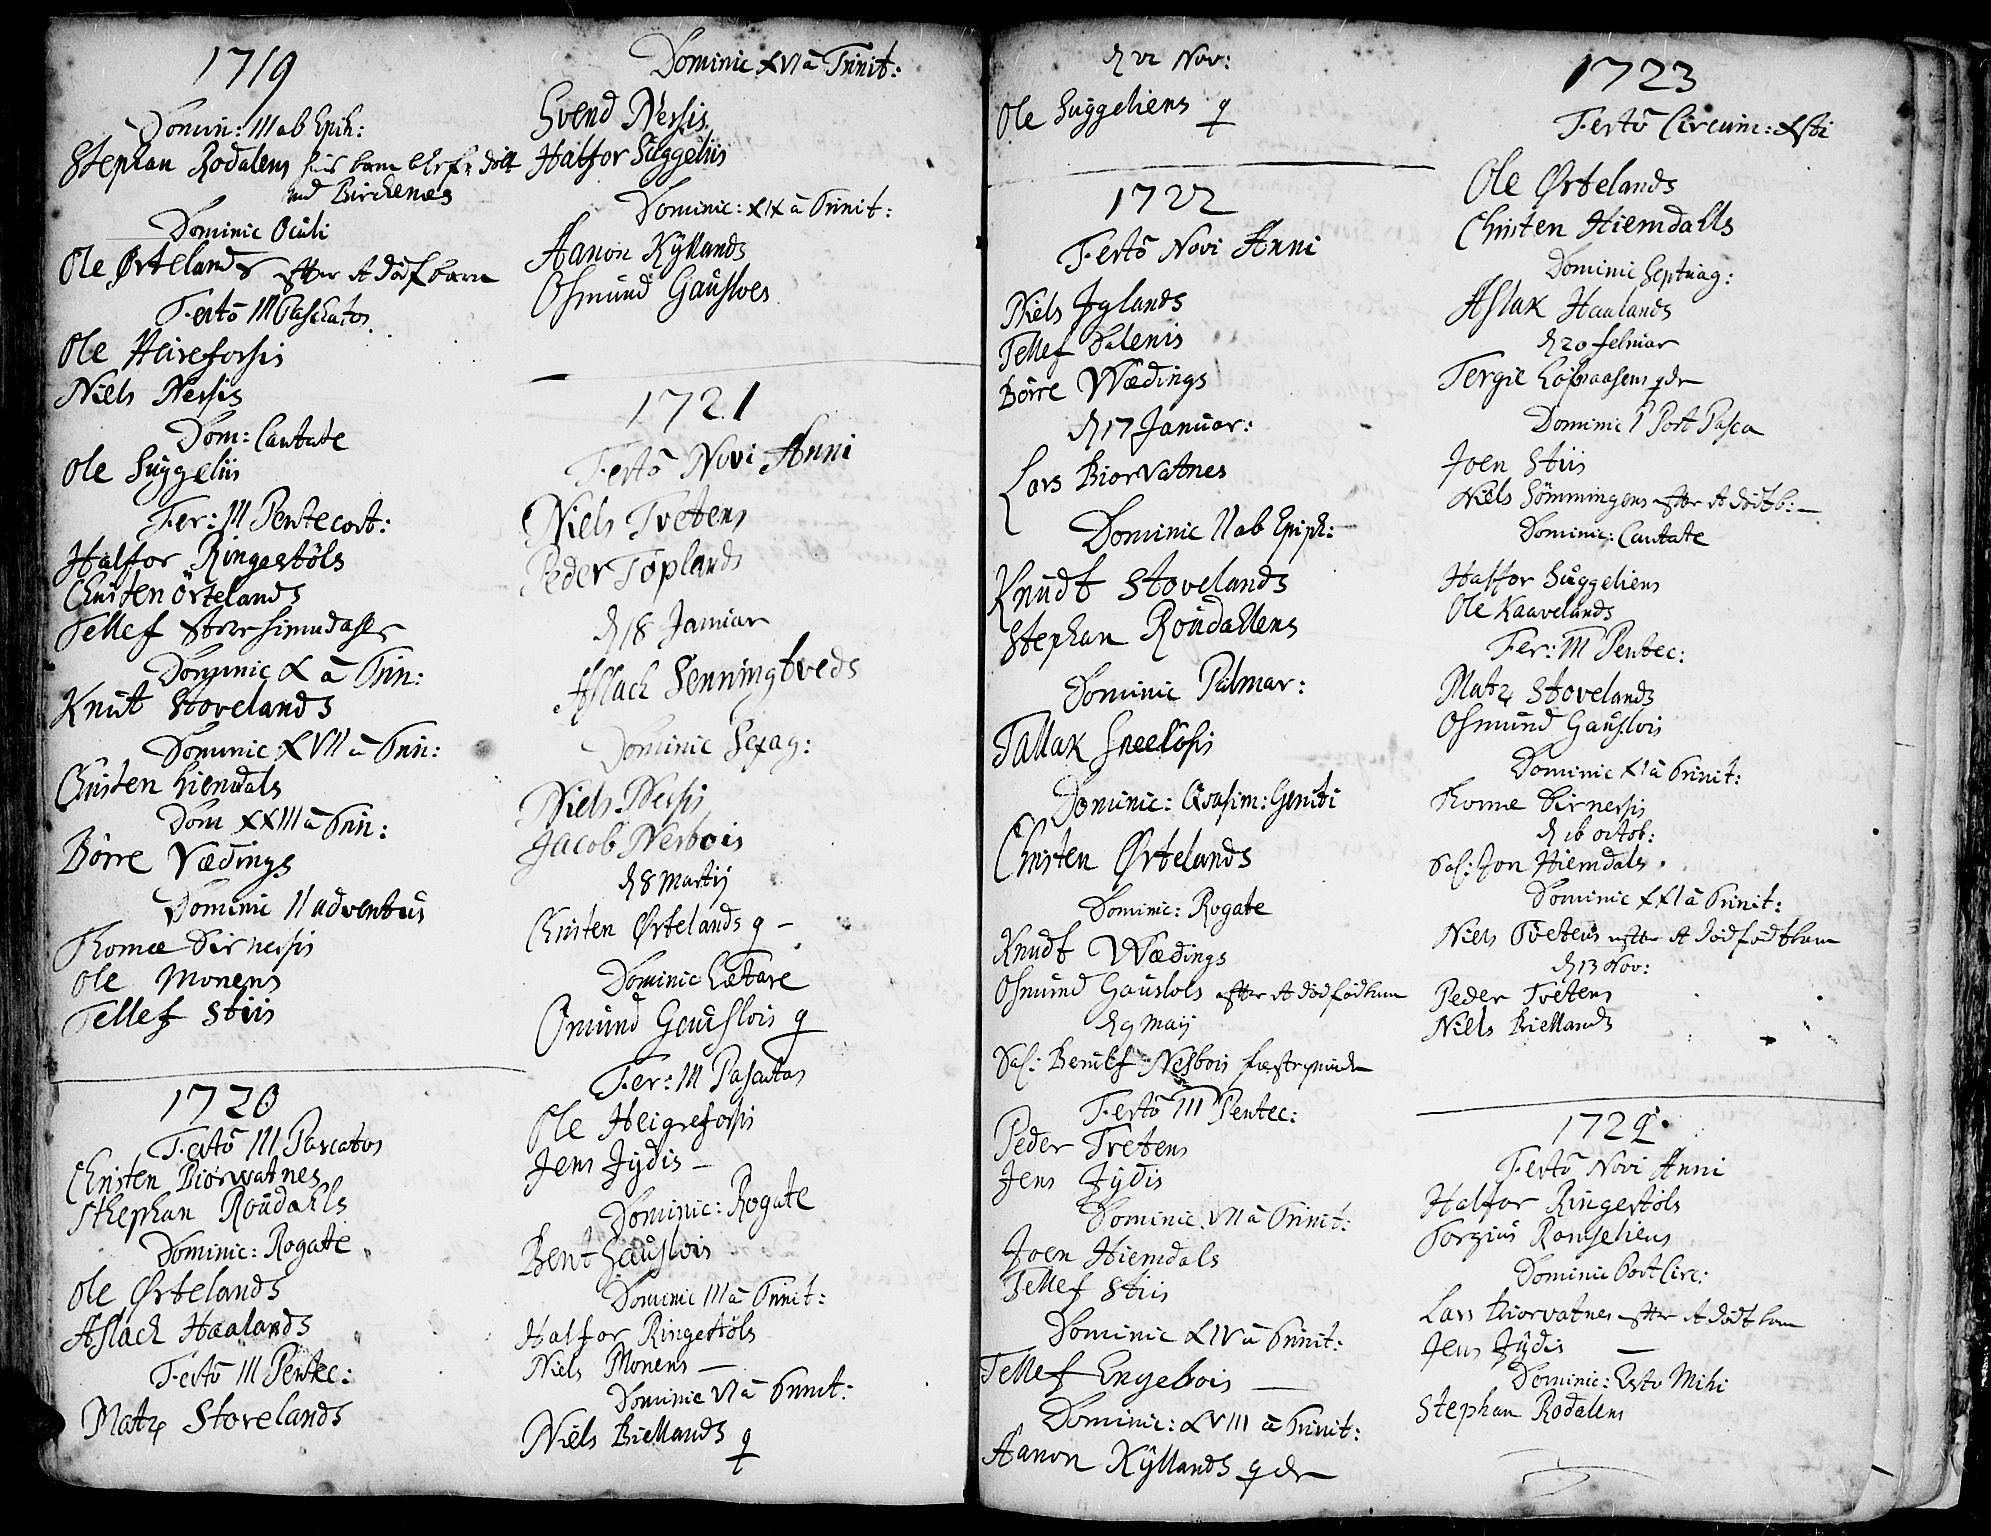 1719
Domin: III ab Epih:
Stephan Rodalens hans barn blef døbt
ved Birchenes
Dominic Oculi
Ole Ørtelands efter et dødf barn
Festo III Paschatos
Ole Heirefossis
Niels Nessis
Dom: Cantate
Ole Suggeliis
Fer: III Pentecost:
Halfor Ringestöls
Christen örtelands
Tellef
Dominic X à Trin:
Knut Stovelands
Dominic XVII à Trin:
Christen hiemdals
Dom XXIII à Trin:
Börre Vædings
Dominic II adventus
Thomæ Birnessis
Ole Monens
Tellef Stiis
1720
Festo III Pascatos
Christen Biorwatnes
Sthephan Roüdahls
Dominic: Rogate
Ole Ørtelands
Aslach Haalands
Festo III Pentec:
Matz Stovelands
Dominic XVI à Trinit:
Svend Nessis
Halfor Suggeliis
Dominic: XIX à Trinit:
Aanon Kÿllands
Osmund Gausloes
1721
Festo Novi Anni
Niels Tvetens
Peder Toplands
d 18 Januar
Aslach Senningtveds
Dominic Sexag:
Niels Nessis
Jacob Nesbois
d 8 Martij
Christen Ørtelands q -
Dominic Lætare
Omund Gauslois q
Fer: III Pascatos
Ole Heigrefossis
Jens Jÿdis -
Dominic: Rogate
Bent Gauslois
Dominic III à Trinit:
Halfor Ringestöls
Niels Monens —
Dominic VI à Trinit:
Niels Biellands q
d 21 Nov:
Ole Suggeliens q
1722
Festo Novi Anni
Niels Jglands
Tellef Dalenis
Börre Wædings
d 17 Januar:
Lars Biorvatnes
Dominic II ab Epiph:
Knudt Stovelands
Stephan Roüdallens
Dominic Palmar:
Tallak Sneelösis
Dominic: Qvasim: Geniti
Christen Ørtelands
Dominic: Rogate
Knudt Wædings
Osmund Gauslois efter et dødfødt barn
d 9 Maij
Sal: Berulf Nesbois
Festo III Pentec:
Peder Tvetens
Jens Jÿdis
Dominic VII à Trinit:
Joen Hiemdals
Tellef Stiis
Dominic XIV à Trinit:
Tellef Engebois —
Dominic: XVIII à Trinit:
Aanon Kÿllands q
1723
Festo Circum: Xsti
Ole Ørtelands
Christen Hiemdalls
Dominic Septuag:
Aslak Haalands
d 20 februar
Tergie
Dominic I Post Pasca
Joen Stiis
Niels Sömmingens efter et dødt b: —
Dominic: Cantate
Halfor Suggeliens
Ole Kaavelands
Fer: III Pentec:
Matz Stovelands
Osmund Gauslois
Dominic XI à Trinit:
Thomæ Birnessis
d 16 octob:
Sal: Jon Hiemdals
Dominic XXI à Trinit:
Niels Tvetens efter et dødfødt barn
d 13 Nov:
Peder Tvetens
Niels Biellands
1724
Festo Novi Anni
Halfor Ringestöls
Torgius Romseliens
Dominic Post Circ:
Lars Biorvatnes efter et dødt barn
Jens Jÿdis —
Dominic: Esto Mihi
Stephan Rodalens